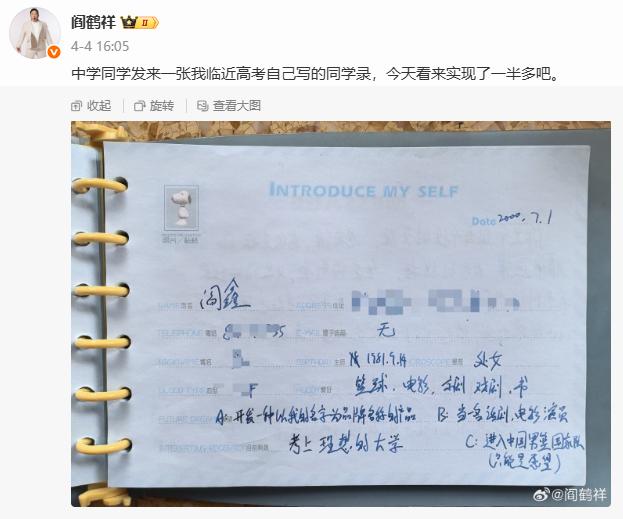 阎鹤祥
4-4 16:05
中学同学发来一张我临近高考自己写的同学录，今天看来实现了一半多吧。
收起 旋转 查看大图
INTRODUCE MY SELF
Date 2000.7.1
NAME 姓名 阎鑫 ADDRESS 住址
TELEPHONE 電話 E-MAIL 電子邮箱 无
NICKNAME 1981.9.14 HOROSCOPE 星座 处女
BLOOD TYPE 血型 HOBBY 爱好 篮球、电影、京剧 戏剧、书
FUTURE DREAM A:开发一种以我的名字为品牌名称的产品 B:当一名话剧、电影演员
考上理想的大学 C:进入中国男篮国家队
(只能是愿望)
@阎鹤祥